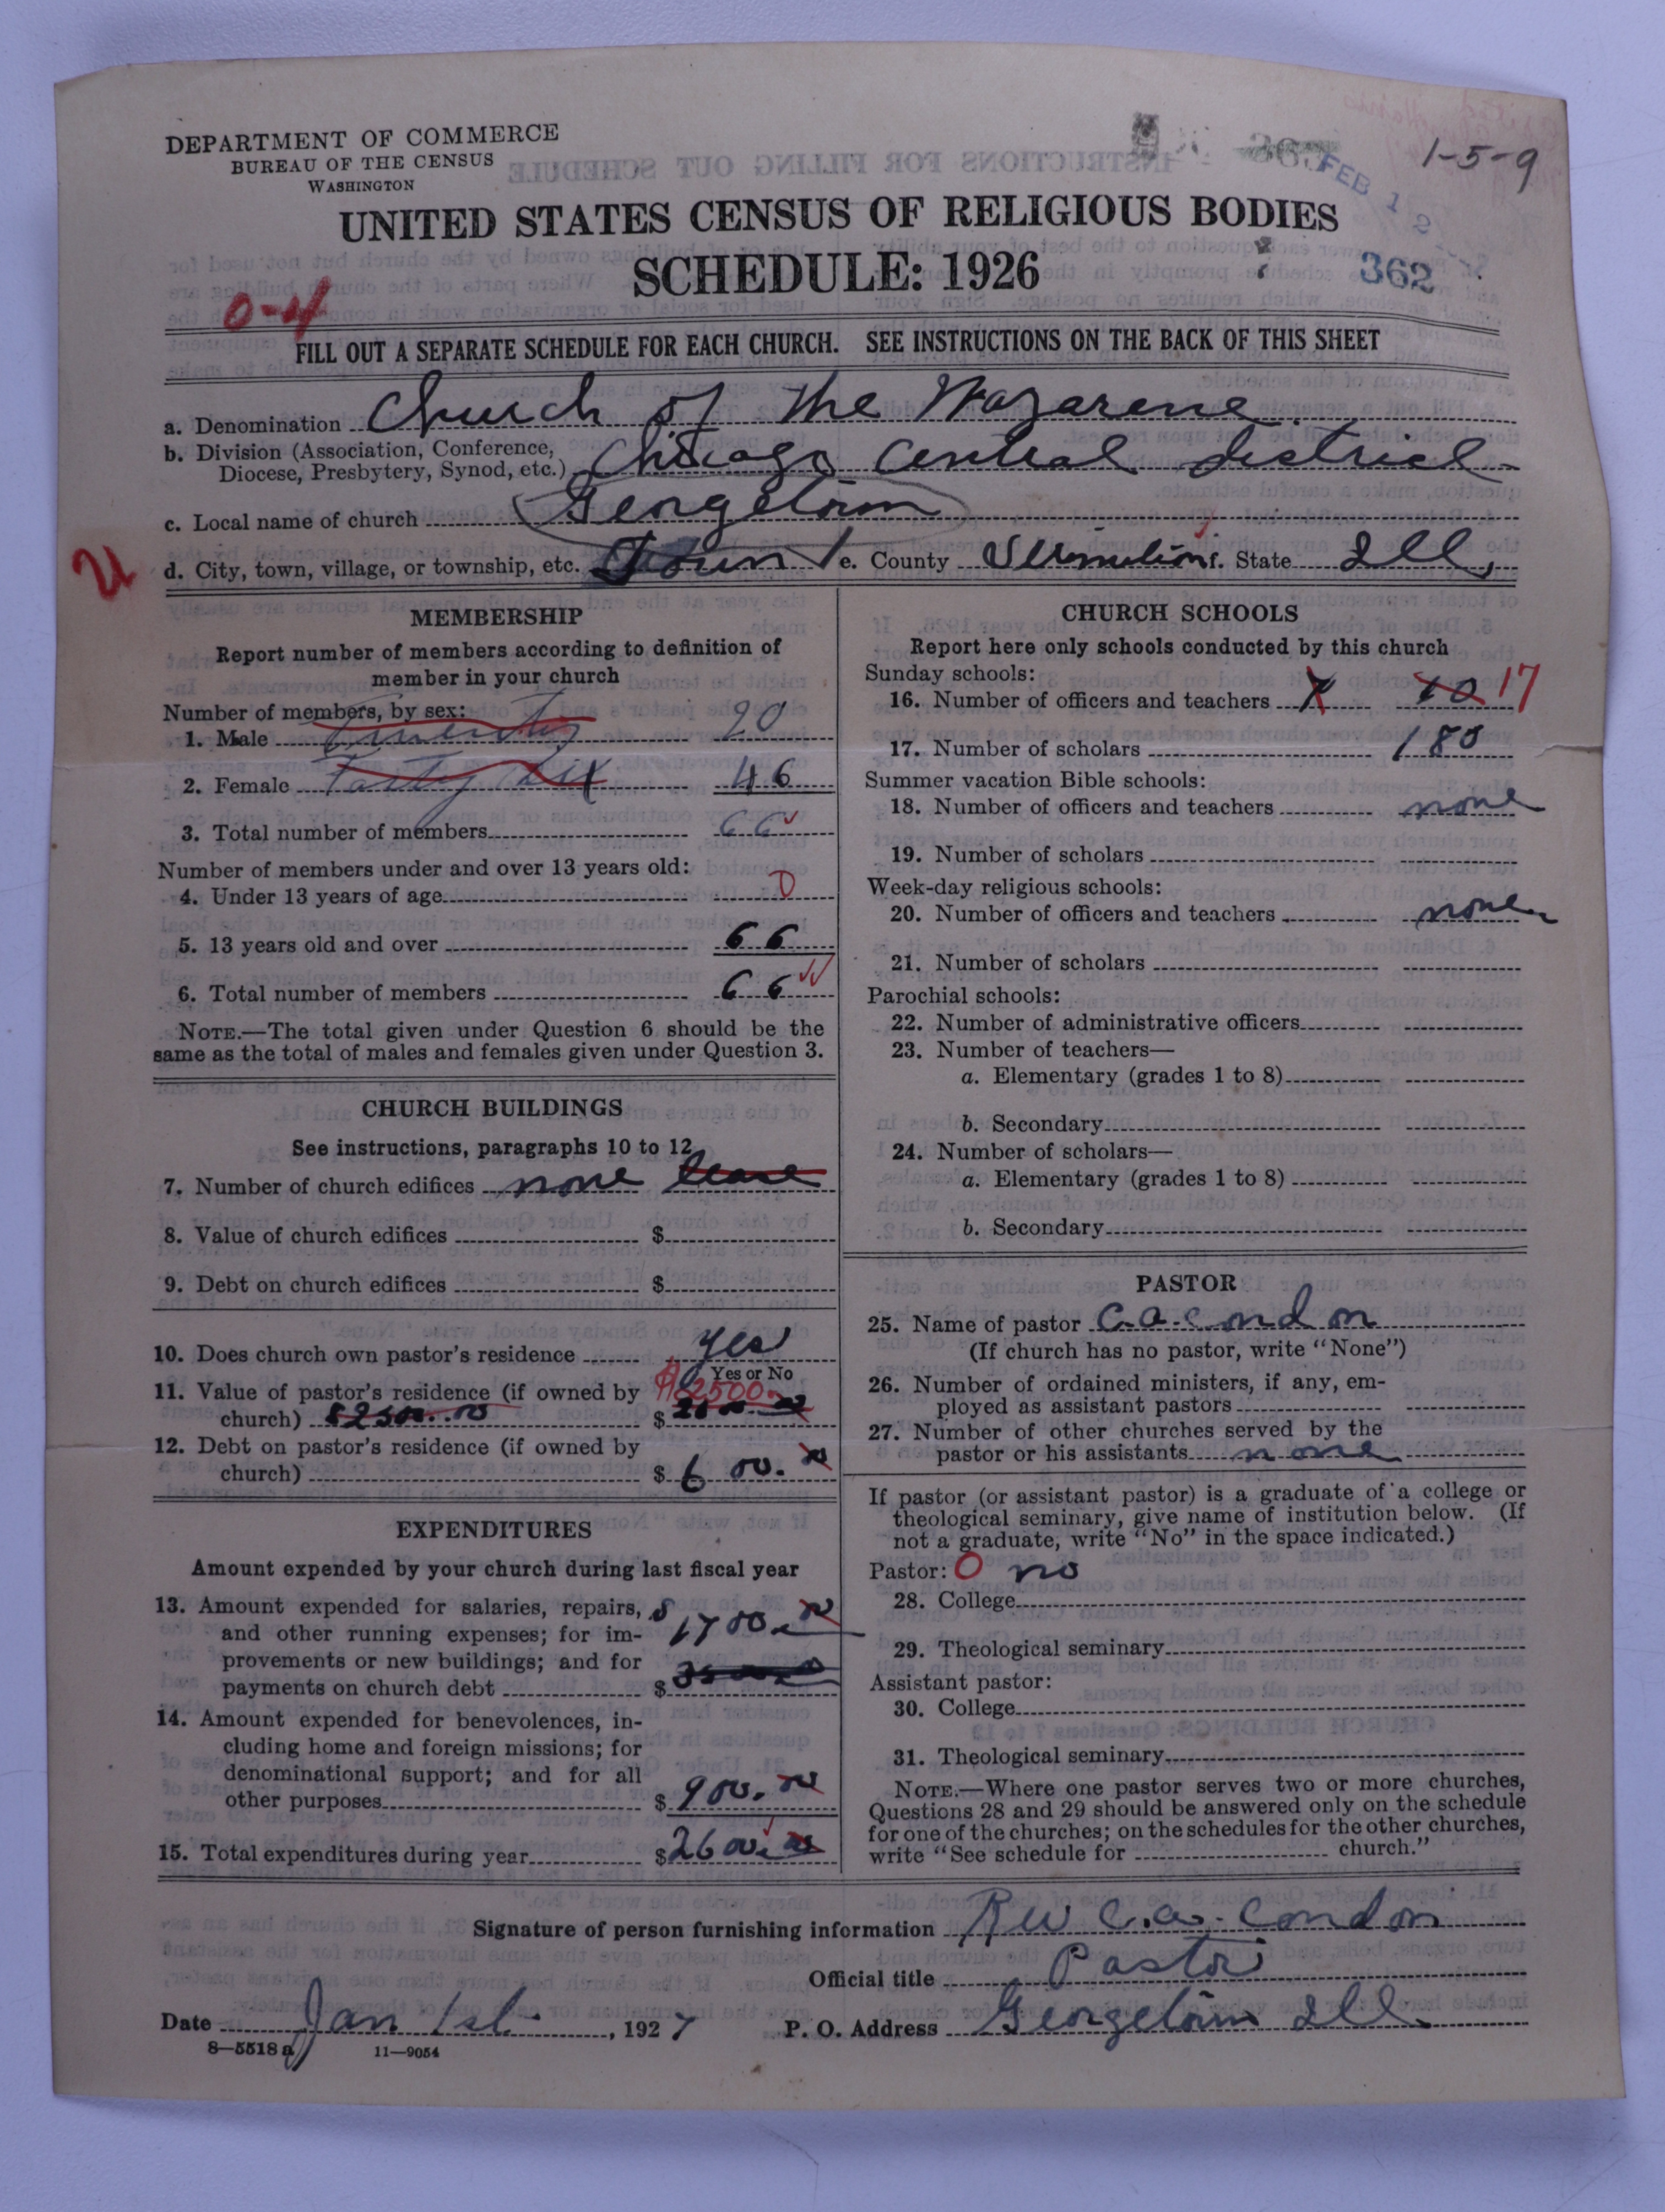 DEPARTMENT OF COMMERCE
BUREAU OF THE CENSUS
WASHINGTON
1-5-9
FEB 1
UNITED STATES CENSUS OF RELIGIOUS BODIES
SCHEDULE: 1926
362
0-4
FILL OUT A SEPARATE SCHEDULE FOR EACH CHURCH. SEE INSTRUCTIONS ON THE BACK OF THIS SHEET
a. Denomination Church of the Nazarene
b. Division (Association, Conference,
Diocese, Presbytery, Synod, etc.) Chicago Central District
c. Local name of church Georgetown
d. City, town, village, or township, etc. Town e. County Vermilion f. State Ill.
MEMBERSHIP
Report number of members according to definition of
member in your church
Number of members, by sex:
1. Male Twenty 20
2. Female Forty six 46
3. Total number of members 66
Number of members under and over 13 years old:
4. Under 13 years of age 0
5. 13 years old and over 66
6. Total number of members 66
NOTE.—The total given under Question 6 should be the
same as the total of males and females given under Question 3.
CHURCH BUILDINGS
See instructions, paragraphs 10 to 12
7. Number of church edifices none lease
8. Value of church edifices $
9. Debt on church edifices $
10. Does church own pastor's residence yes
Yes or No
11. Value of pastor's residence (if owned by
church) $2500.00 $ 2500.
12. Debt on pastor's residence (if owned by
church) $ 600.00
EXPENDITURES
Amount expended by your church during last fiscal year
13. Amount expended for salaries, repairs,
and other running expenses; for im-
provements or new buildings; and for
payments on church debt $ 1700.00
14. Amount expended for benevolences, in-
cluding home and foreign missions; for
denominational support; and for all
other purposes $ 900.00
15. Total expenditures during year $ 2600.00
CHURCH SCHOOLS
Report here only schools conducted by this church
Sunday schools:
16. Number of officers and teachers 10 17
17. Number of scholars 180
Summer vacation Bible schools:
18. Number of officers and teachers none
19. Number of scholars
Week-day religious schools:
20. Number of officers and teachers none
21. Number of scholars
Parochial schools:
22. Number of administrative officers
23. Number of teachers—
a. Elementary (grades 1 to 8)
b. Secondary
24. Number of scholars—
a. Elementary (grades 1 to 8)
b. Secondary
PASTOR
25. Name of pastor C.A. Condon
(If church has no pastor, write "None")
26. Number of ordained ministers, if any, em-
ployed as assistant pastors
27. Number of other churches served by the
pastor or his assistants none
If pastor (or assistant pastor) is a graduate of a college or
theological seminary, give name of institution below. (If
not a graduate, write "No" in the space indicated.)
Pastor: 0 no
28. College
29. Theological seminary
Assistant pastor:
30. College
31. Theological seminary
NOTE.—Where one pastor serves two or more churches,
Questions 28 and 29 should be answered only on the schedule
for one of the churches; on the schedules for the other churches,
write "See schedule for church."
Signature of person furnishing information Rev C.A. Condon
Official title Pastor
Date Jan 1st, 1927 P. O. Address Georgetown Ill.
8—5518a 11—9054